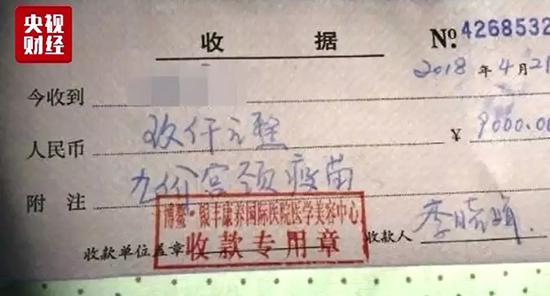 央视
财经
收 据 №:4268532
2018 年 4 月 21
今收到
人民币 玖仟元整 ¥ 9000.00
附 注 九价宫颈疫苗
博鳌·银丰康养国际医院医学美容中心
收款单位盖章 收款专用章 收款人 李晓